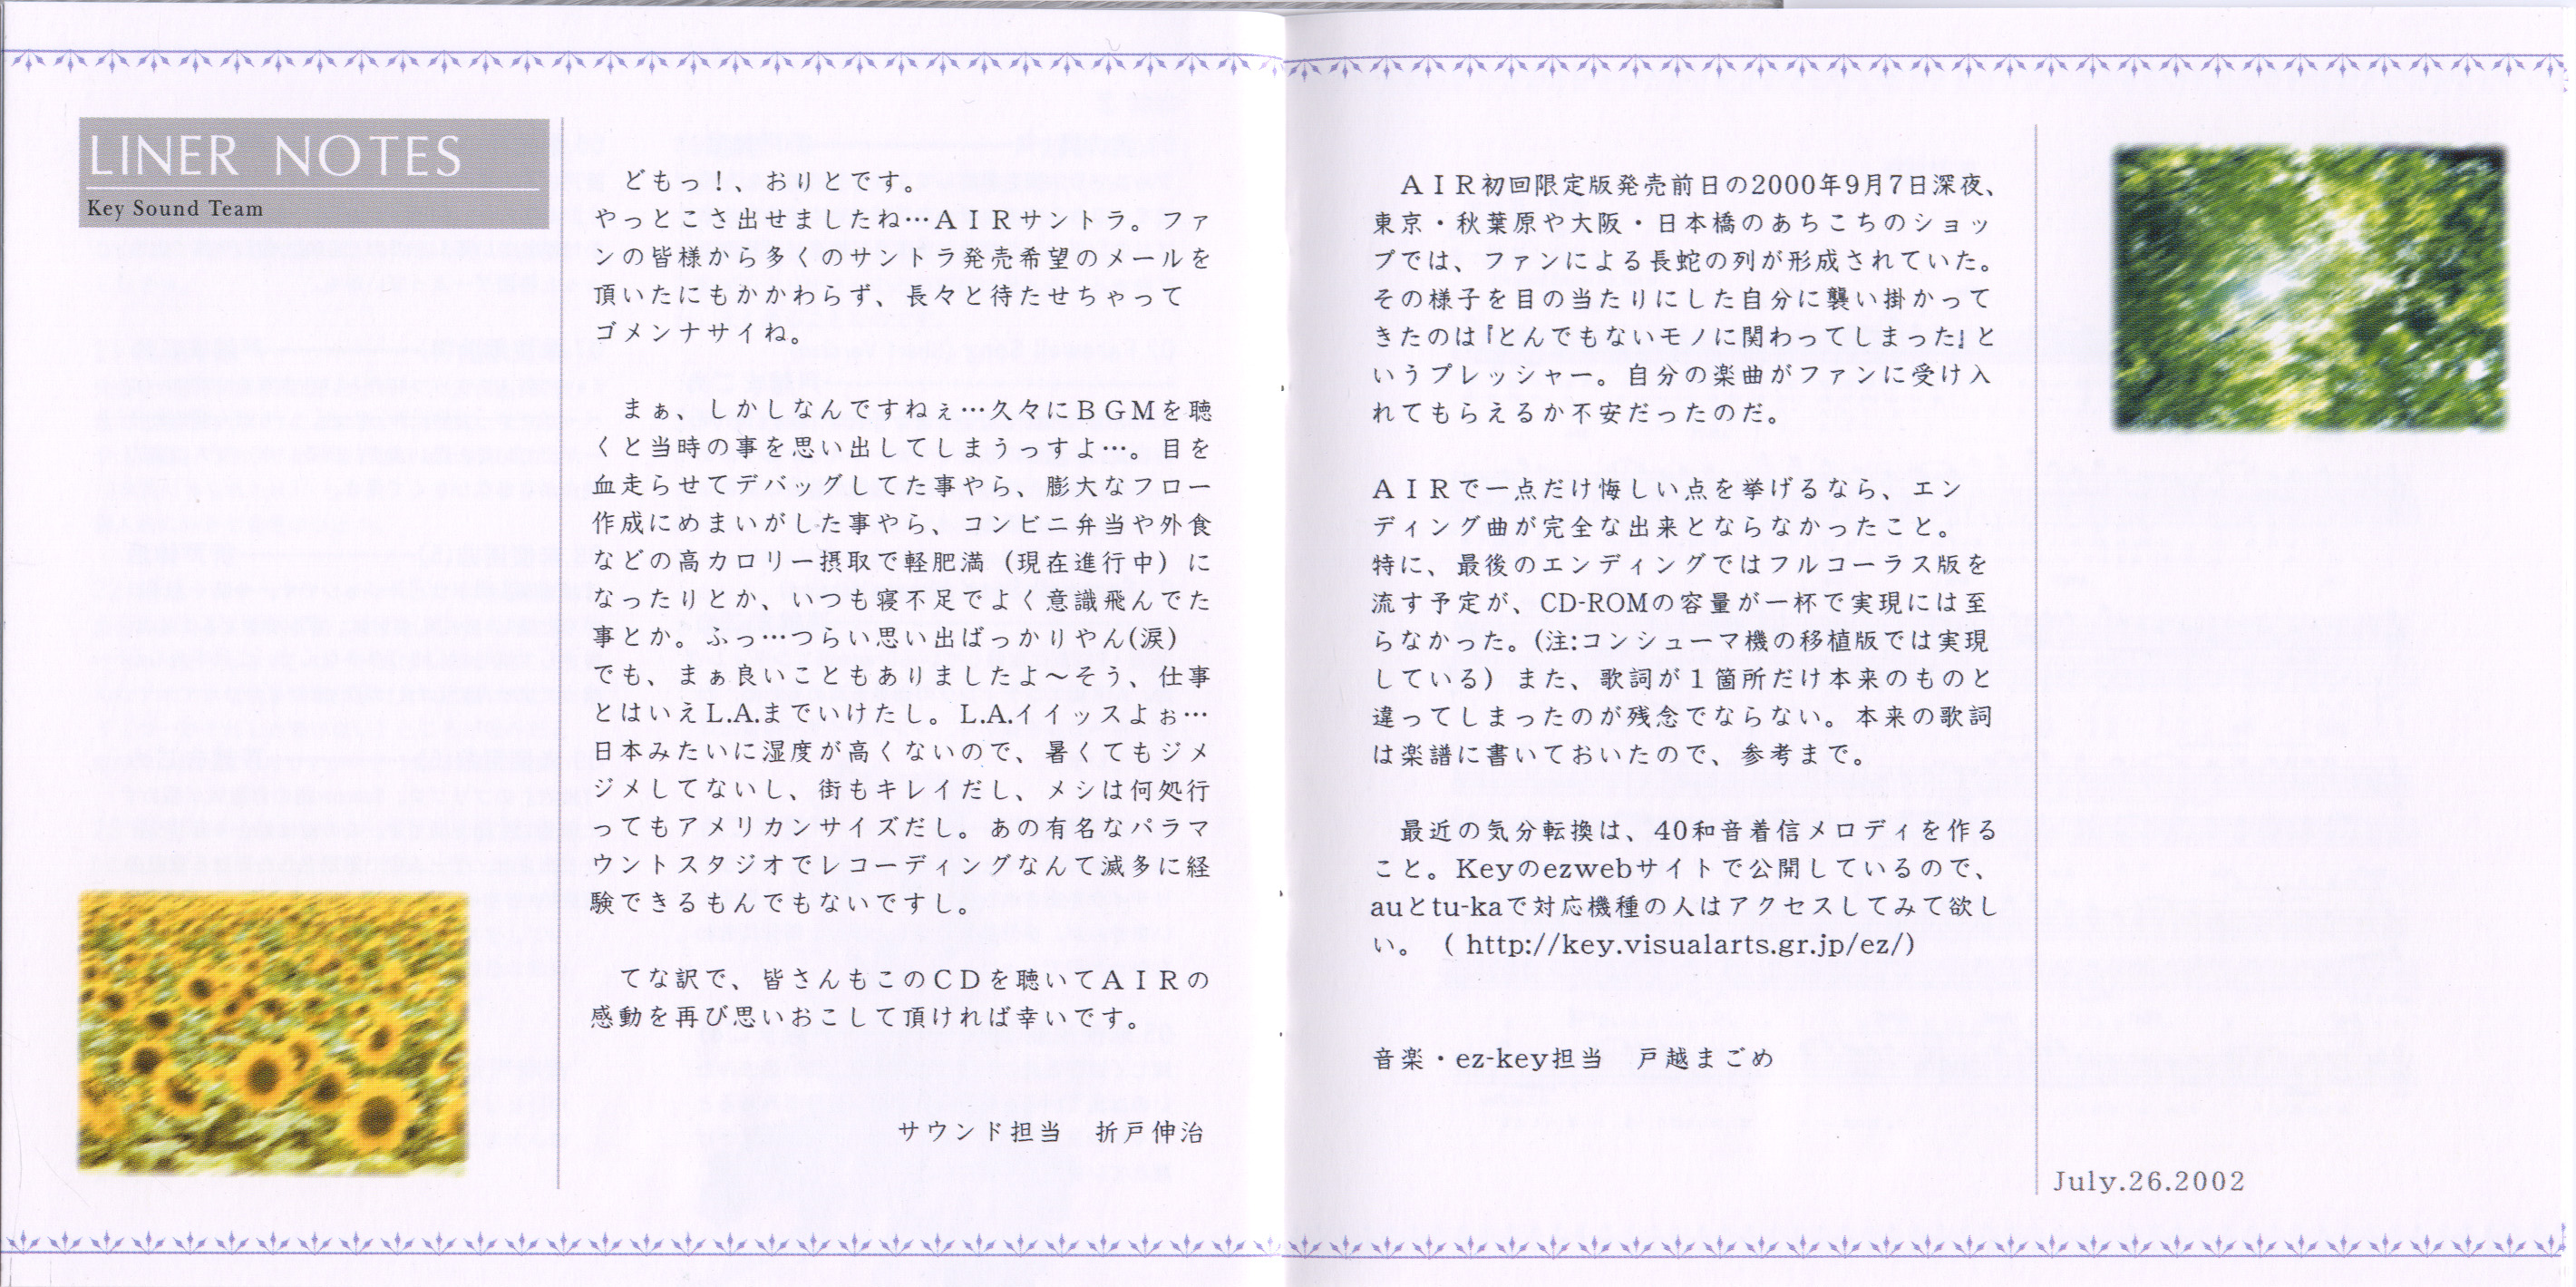 LINER NOTES
Key Sound Team
どもっ！、おりとです。
やっとこさ出せましたね…ＡＩＲサントラ。ファ
ンの皆様から多くのサントラ発売希望のメールを
頂いたにもかかわらず、長々と待たせちゃって
ゴメンナサイね。
まぁ、しかしなんですねぇ…久々にＢＧＭを聴
くと当時の事を思い出してしまうっすよ…。目を
血走らせてデバッグしてた事やら、膨大なフロー
作成にめまいがした事やら、コンビニ弁当や外食
などの高カロリー摂取で軽肥満（現在進行中）に
なったりとか、いつも寝不足でよく意識飛んでた
事とか。ふっ…つらい思い出ばっかりやん(涙)
でも、まぁ良いこともありましたよ～そう、仕事
とはいえL.A.までいけたし。L.A.イイッスよぉ…
日本みたいに湿度が高くないので、暑くてもジメ
ジメしてないし、街もキレイだし、メシは何処行
ってもアメリカンサイズだし。あの有名なパラマ
ウントスタジオでレコーディングなんて滅多に経
験できるもんでもないですし。
てな訳で、皆さんもこのＣＤを聴いてＡＩＲの
感動を再び思いおこして頂ければ幸いです。
サウンド担当　折戸伸治
ＡＩＲ初回限定版発売前日の2000年9月7日深夜、
東京・秋葉原や大阪・日本橋のあちこちのショッ
プでは、ファンによる長蛇の列が形成されていた。
その様子を目の当たりにした自分に襲い掛かって
きたのは『とんでもないモノに関わってしまった』と
いうプレッシャー。自分の楽曲がファンに受け入
れてもらえるか不安だったのだ。
ＡＩＲで一点だけ悔しい点を挙げるなら、エン
ディング曲が完全な出来とならなかったこと。
特に、最後のエンディングではフルコーラス版を
流す予定が、CD-ROMの容量が一杯で実現には至
らなかった。(注:コンシューマ機の移植版では実現
している）また、歌詞が１箇所だけ本来のものと
違ってしまったのが残念でならない。本来の歌詞
は楽譜に書いておいたので、参考まで。
最近の気分転換は、40和音着信メロディを作る
こと。Keyのezwebサイトで公開しているので、
auとtu-kaで対応機種の人はアクセスしてみて欲し
い。 ( http://key.visualarts.gr.jp/ez/)
音楽・ez-key担当　戸越まごめ
July.26.2002